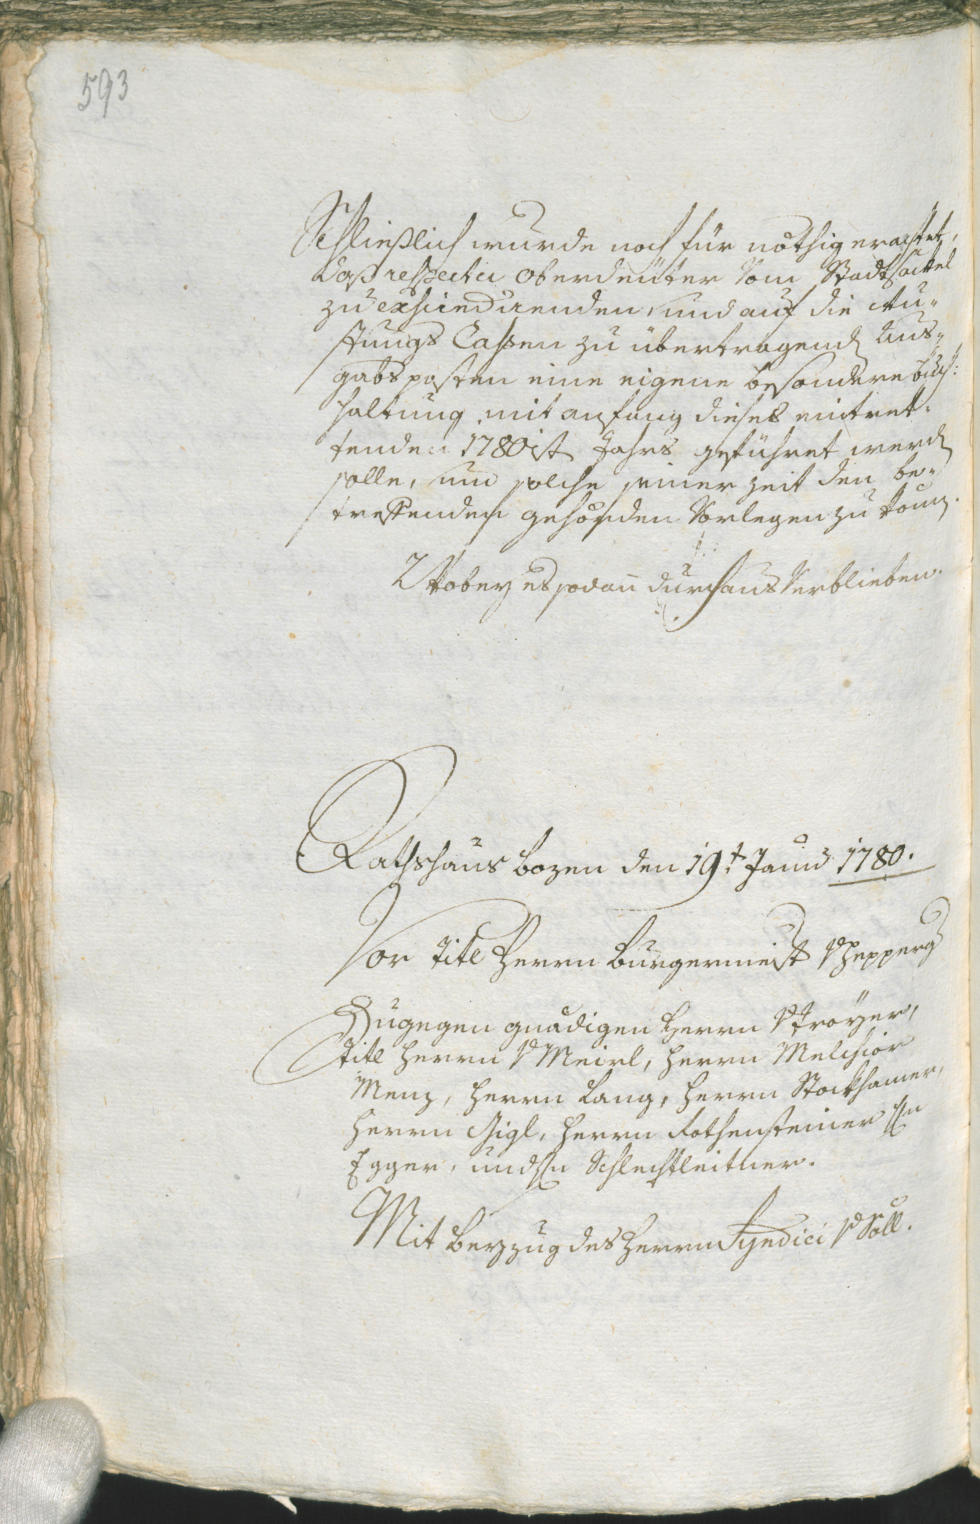 593
Schließlich wurde noch für nöthig erachtet,
daß respectu oberdeüter vom Stadt säckel
zu exscindirenden, und auf die Au-
stungs Cassen zu übertragenden Aus-
gabsposten eine eigene besondere buch-
haltung mit anfang dieses eintret-
tenden 1780ist Jahrs geführet werden
solle, um solche seiner zeit den be-
treffenden gehörden Vorlegen zu können.
Wobey es sodann durchaus Verblieben.
Rathshaus bozen den 19t Januar 1780.
Vor titl Herrn Burgermeister v Zepperg
Zugegen gnädigen Herrn v Troÿer,
titl Herrn v Meirl, Herrn Melchior
Menz, Herrn Lang, Herrn Stockhamer,
Herrn Gigl, Herrn Rothensteiner Hn
Egger, und Hn Schlechtleitner.
Mit Beyzug des Herrn Syndici v Söll.